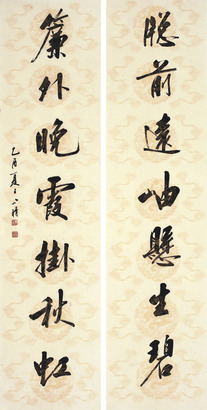 牕前遠岫懸生碧
簾外晚霞掛秋虹
乙酉夏